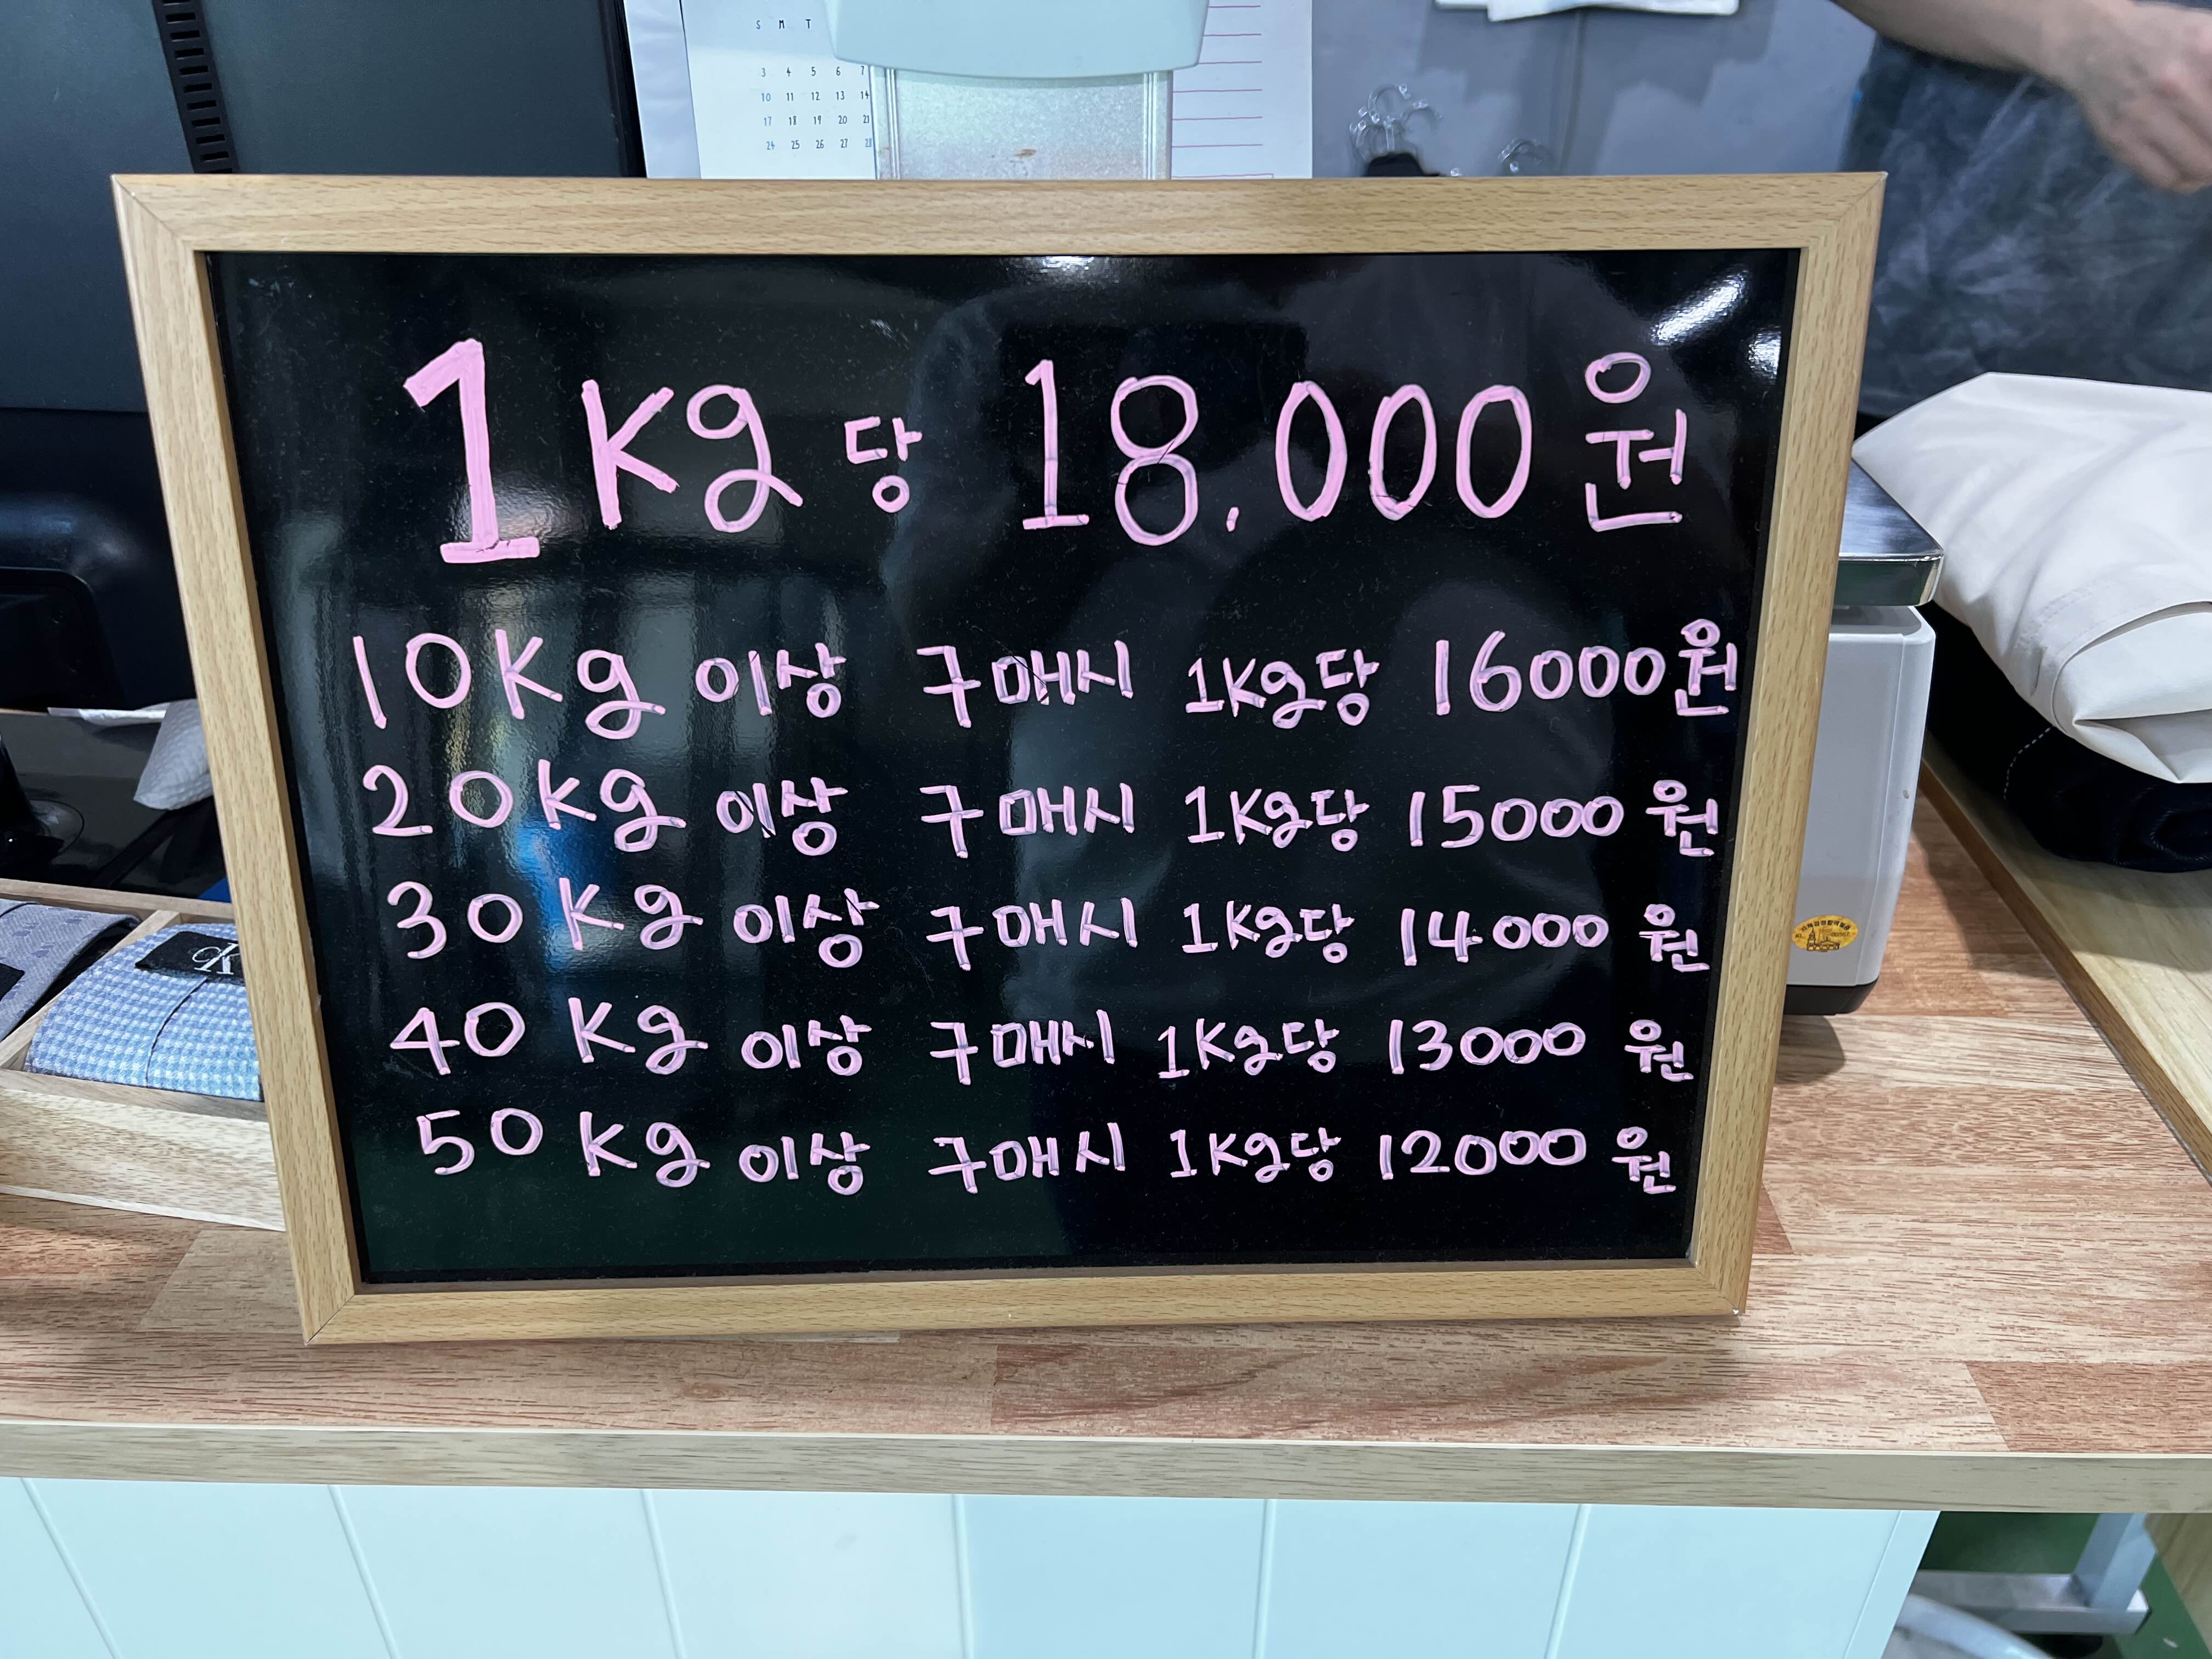 S M T
3 4 5 6 7
10 11 12 13 14
17 18 19 20 21
24 25 26 27 28
1kg당 18.000원
10kg 이상 구매시 1kg당 16000원
20kg 이상 구매시 1kg당 15000원
30kg 이상 구매시 1kg당 14000원
40kg 이상 구매시 1kg당 13000원
50kg 이상 구매시 1kg당 12000원